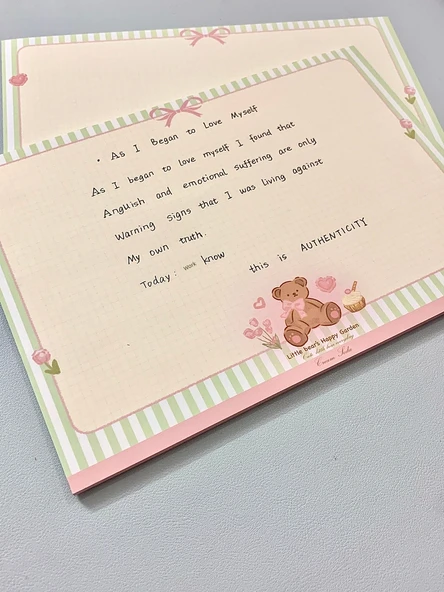 • As I Began to Love Myself
As I began to love myself I found that
Anguish and emotional suffering are only
Warning signs that I was living against
My own truth.
Today: work know this is AUTHENTICITY
Little bear's Happy Garden
Cute little bear everyday
Cream